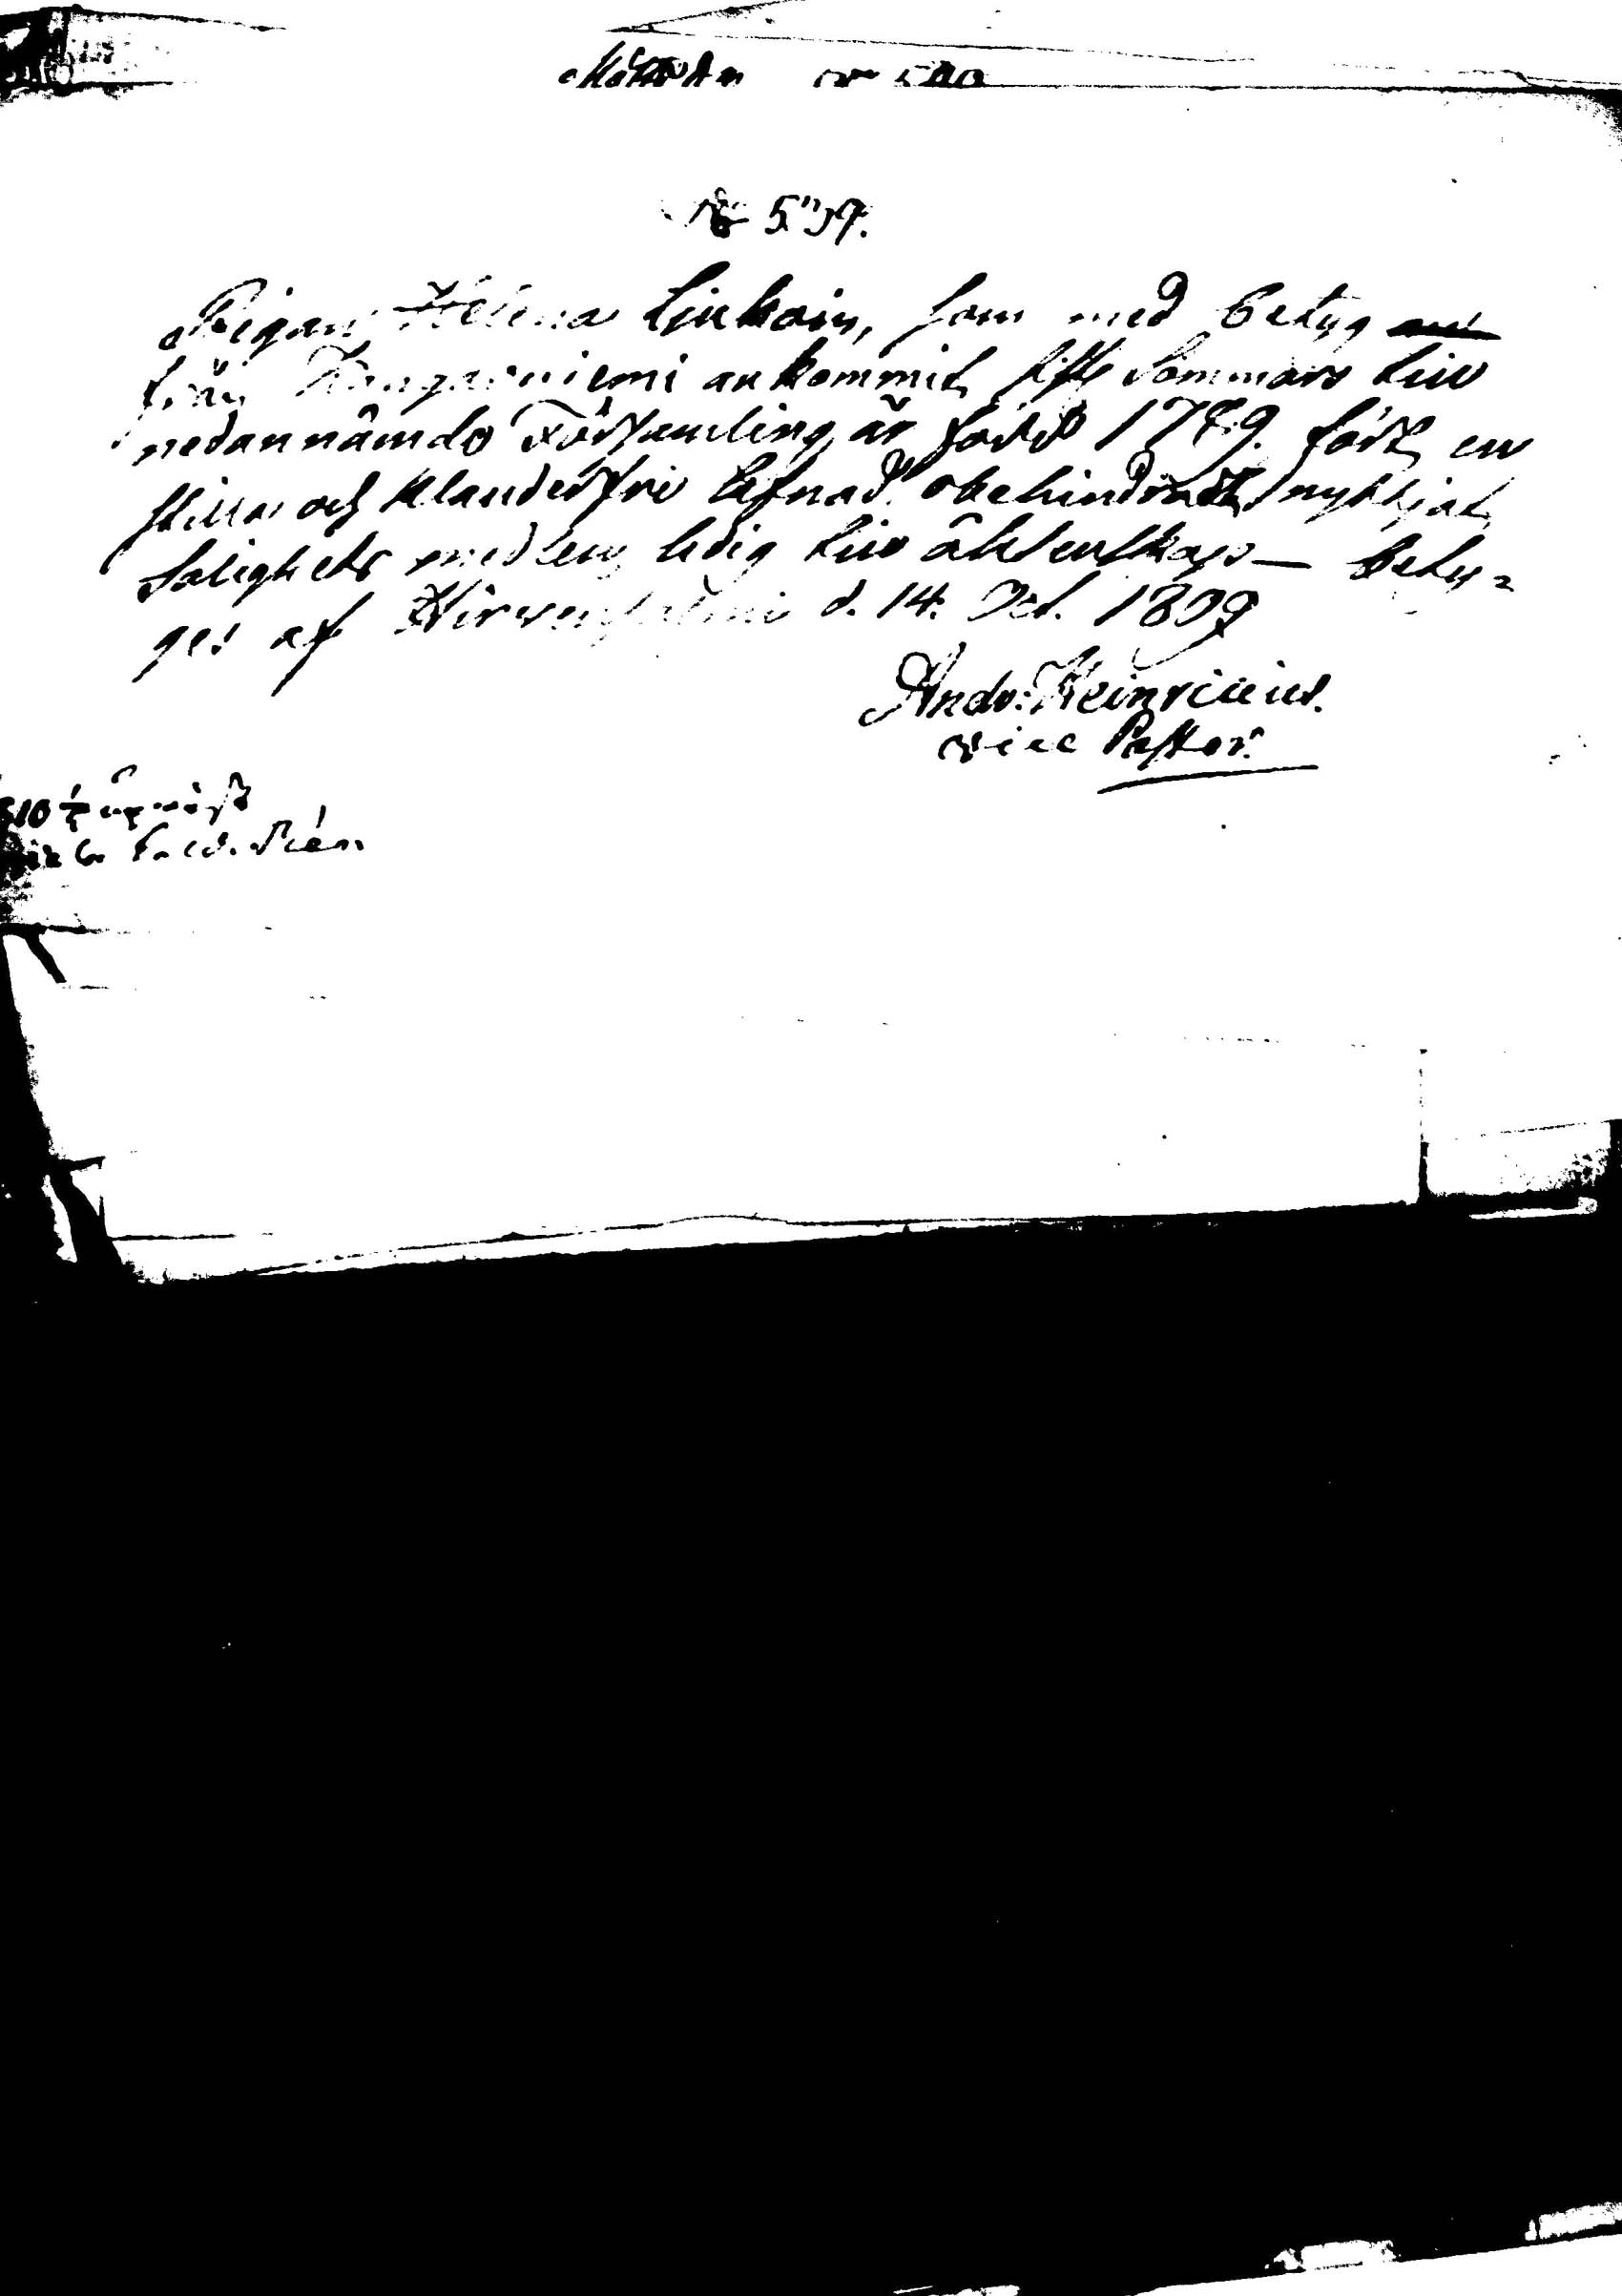 Pigan Helena Liukoin, som med betyg
från Kangasniemi ankommit sistl. Sommars till
nedannämde Församling, är född 1789. fört en
stilla och klanderfri lefnad, obehindradt nyttjat
salighets medlen, ledig till äktenskap — bety-
ges af Hirvensalmi d. 14. Oct. 1809
Andr: Heinricius.
vice Pastor.